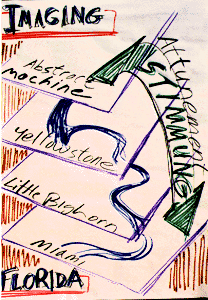 IMAGING
Abstract
machine
Attunement
STIMMUNG
Yellowstone
Little Bighorn
Miami
FLORIDA